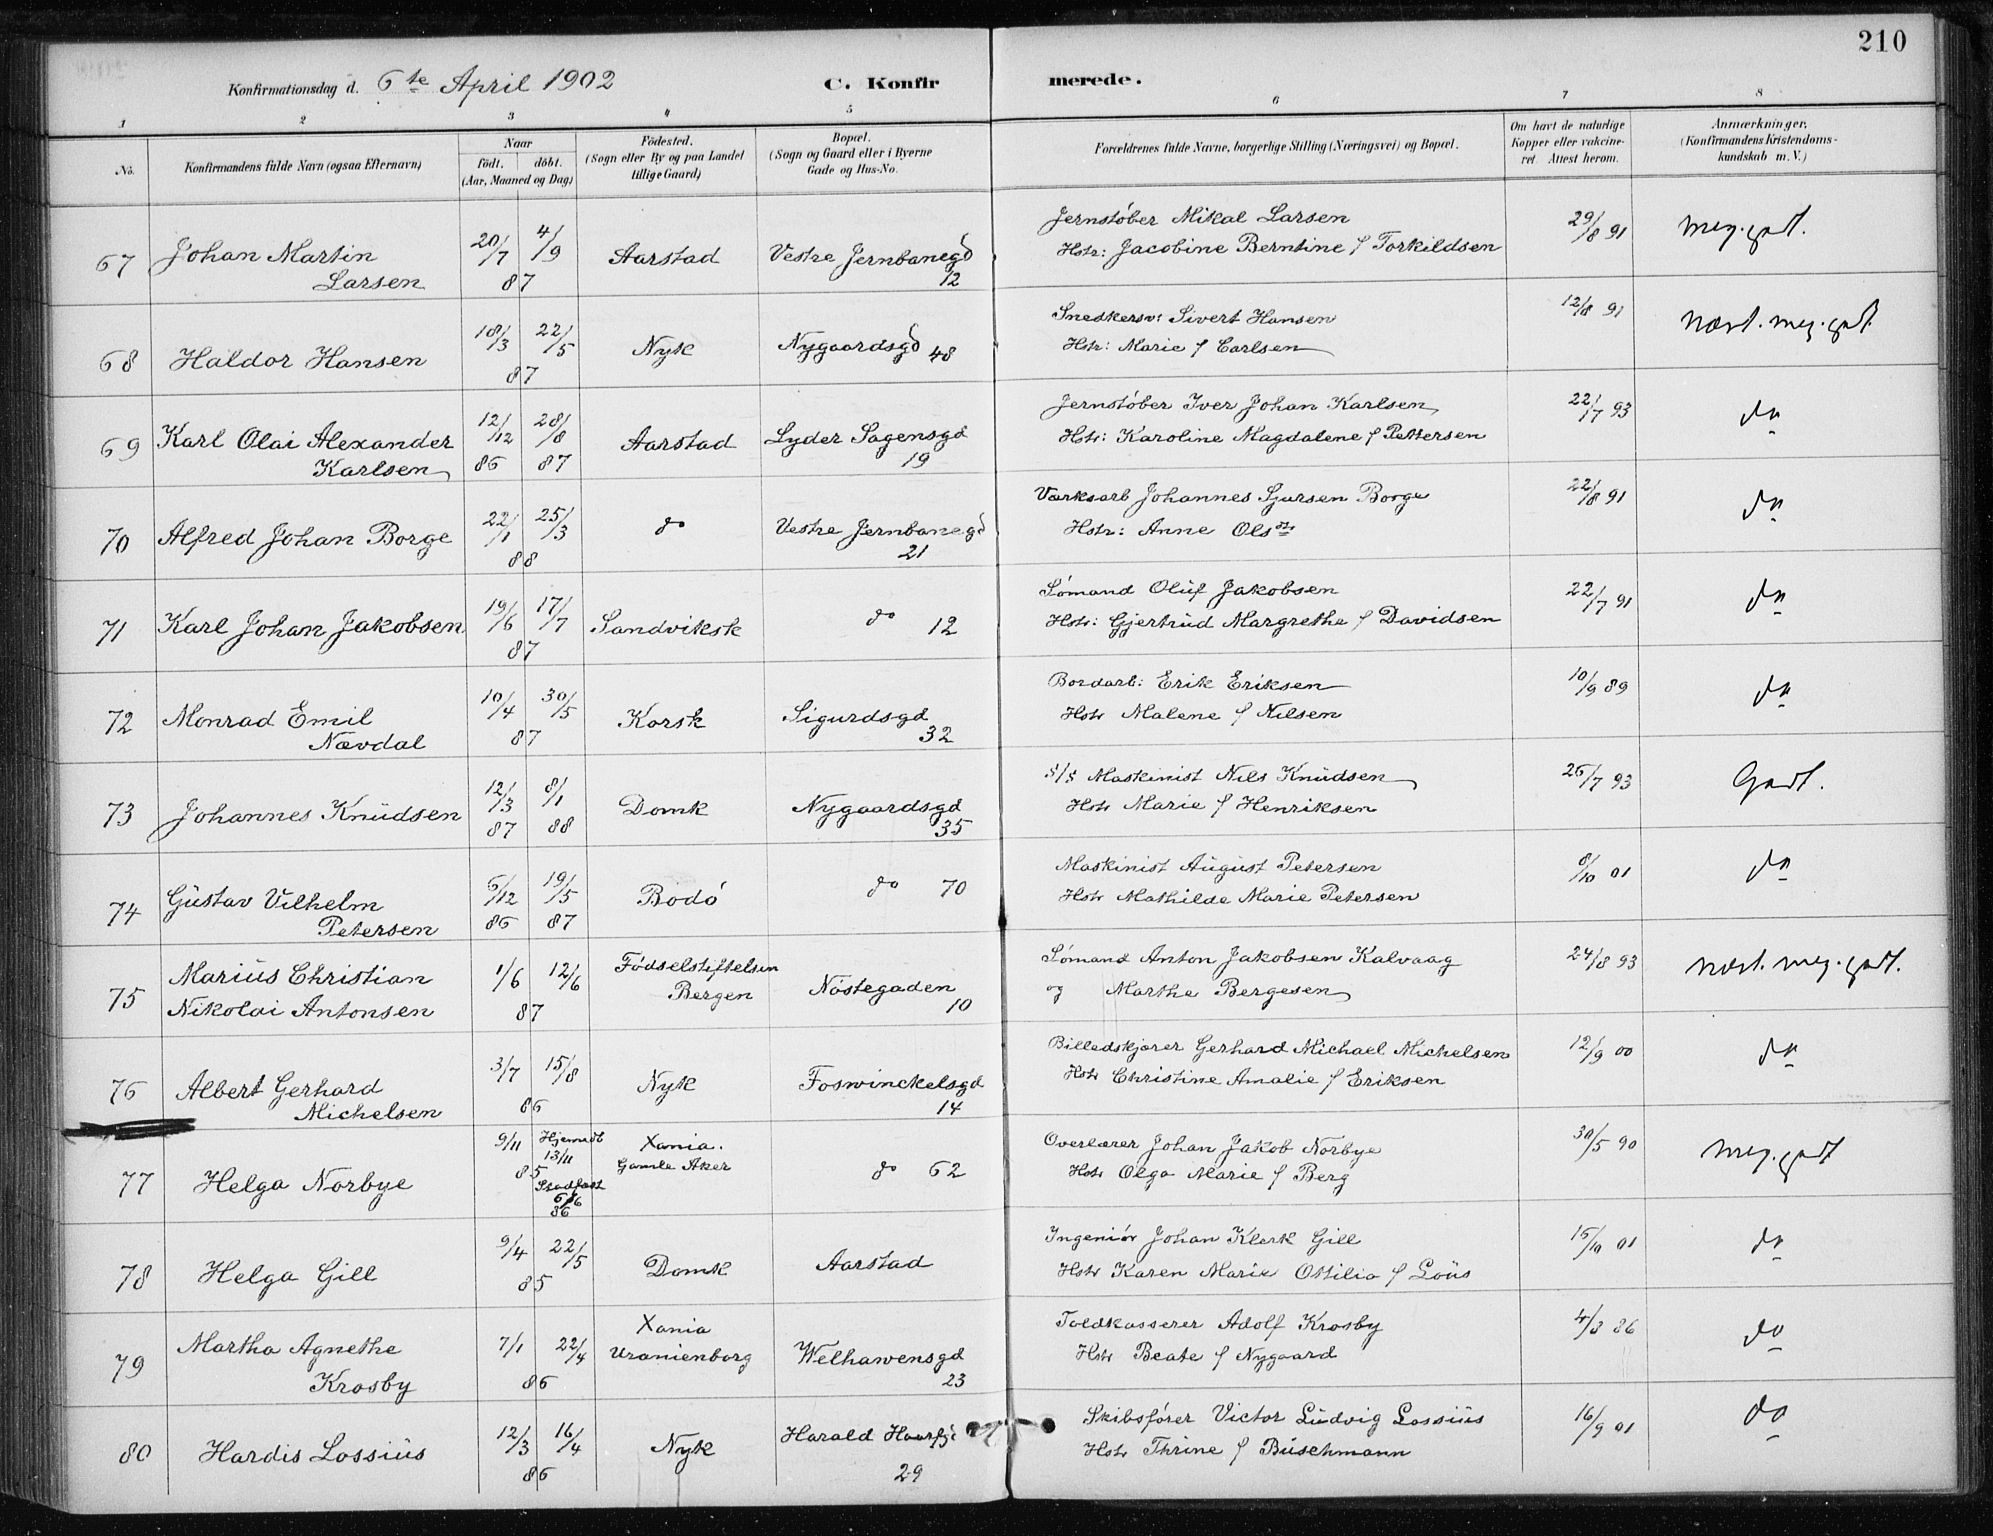 210
Konfirmationsdag d. 6te April 1902 C. Konfirmerede.
1 2 3 4 5 6 7 8
No. Konfirmandens fulde Navn (ogsaa Efternavn) Naar født. døbt. (Aar, Maaned og Dag) Födested. (Sogn eller By og paa Landet tillige Gaard) Bopæl. (Sogn og Gaard eller i Byerne Gade og Hus-No. Forældrenes fulde Navne, borgerlige Stilling (Næringsvei) og Bopæl. Om havt de naturlige Kopper eller vakcineret. Attest herom. Anmærkninger. (Konfirmandens Kristendomskundskab m. V.)
67 Johan Martin Larsen 20/7 4/9 87 Aarstad Vestre Jernbanegd 12 Jernstøber Mikal Larsen 29/8 91 Meg. godt.
Hstr: Jacobine Berntine f Torkildsen
68 Haldor Hansen 18/3 22/5 87 Nyk Nygaardsgd 48 Snedkersv: Sivert Hansen 12/8 91 Næst. meg. godt.
Hstr: Marie f Carlsen
69 Karl Olai Alexander Karlsen 12/12 86 28/8 87 Aarstad Lyder Sagensgd 19 Jernstøber Iver Johan Karlsen 22/7 93 do
Hstr: Karoline Magdalene f Pettersen
70 Alfred Johan Borge 22/1 25/3 88 do Vestre Jernbanegd 21 Værksarb Johannes Sjursen Borge 22/8 91 do
Hstr: Anne Olsdr
71 Karl Johan Jakobsen 19/6 17/7 87 Sandviksk do 12 Sømand Oluf Jakobsen 22/7 91 do
Hstr: Gjertrud Margrethe f Davidsen
72 Monrad Emil Nævdal 10/4 30/5 87 Korsk Sigurdsgd 32 Bordarb: Erik Eriksen 10/9 89 do
Hstr Malene f Nilsen
73 Johannes Knudsen 12/3 87 8/1 88 Domk Nygaardsgd 35 S/S Maskinist Nils Knudsen 26/7 93 Godt.
Hstr Marie f Henriksen
74 Gustav Vilhelm Petersen 6/12 86 19/5 87 Bodø do 70 Maskinist August Petersen 8/10 01 do
Hstr Mathilde Marie Petersen
75 Marius Christian Nikolai Antonsen 1/6 12/6 87 Fødselstiftelsen Bergen Nøstegaden 10 Sømand Anton Jakobsen Kalvaag 24/8 93 Næst. meg. godt.
og Marthe Bergesen
76 Albert Gerhard Michelsen 3/7 15/8 86 Nyk Foswinckelsgd 14 Billedskjærer Gerhard Michael Michelsen 12/9 00 do
Hstr Christine Amalie f Eriksen
77 Helga Norbye 9/11 85 Hjemedt 13/11 Stadfæst 6/6 86 Xania. Gamle Aker do 62 Overlærer Johan Jakob Norbye 30/5 90 Meg. godt
Hstr Olga Marie f Berg
78 Helga Gill 9/4 22/5 85 Domk Aarstad Ingeniør Johan Klerk Gill 15/10 01 do
Hstr Karen Marie Ottilia f Lous
79 Martha Agnethe Krosby 7/1 22/4 86 Xania Uranienborg Welhavensgd 23 Toldkasserer Adolf Krosby 4/3 86 do
Hstr Beate f Nygaard
80 Hardis Lossius 12/3 16/4 86 Nyk Harald Haarfg 29 Skibsfører Victor Ludvig Lossius 16/9 01 do
Hstr Thrine f Buschmann